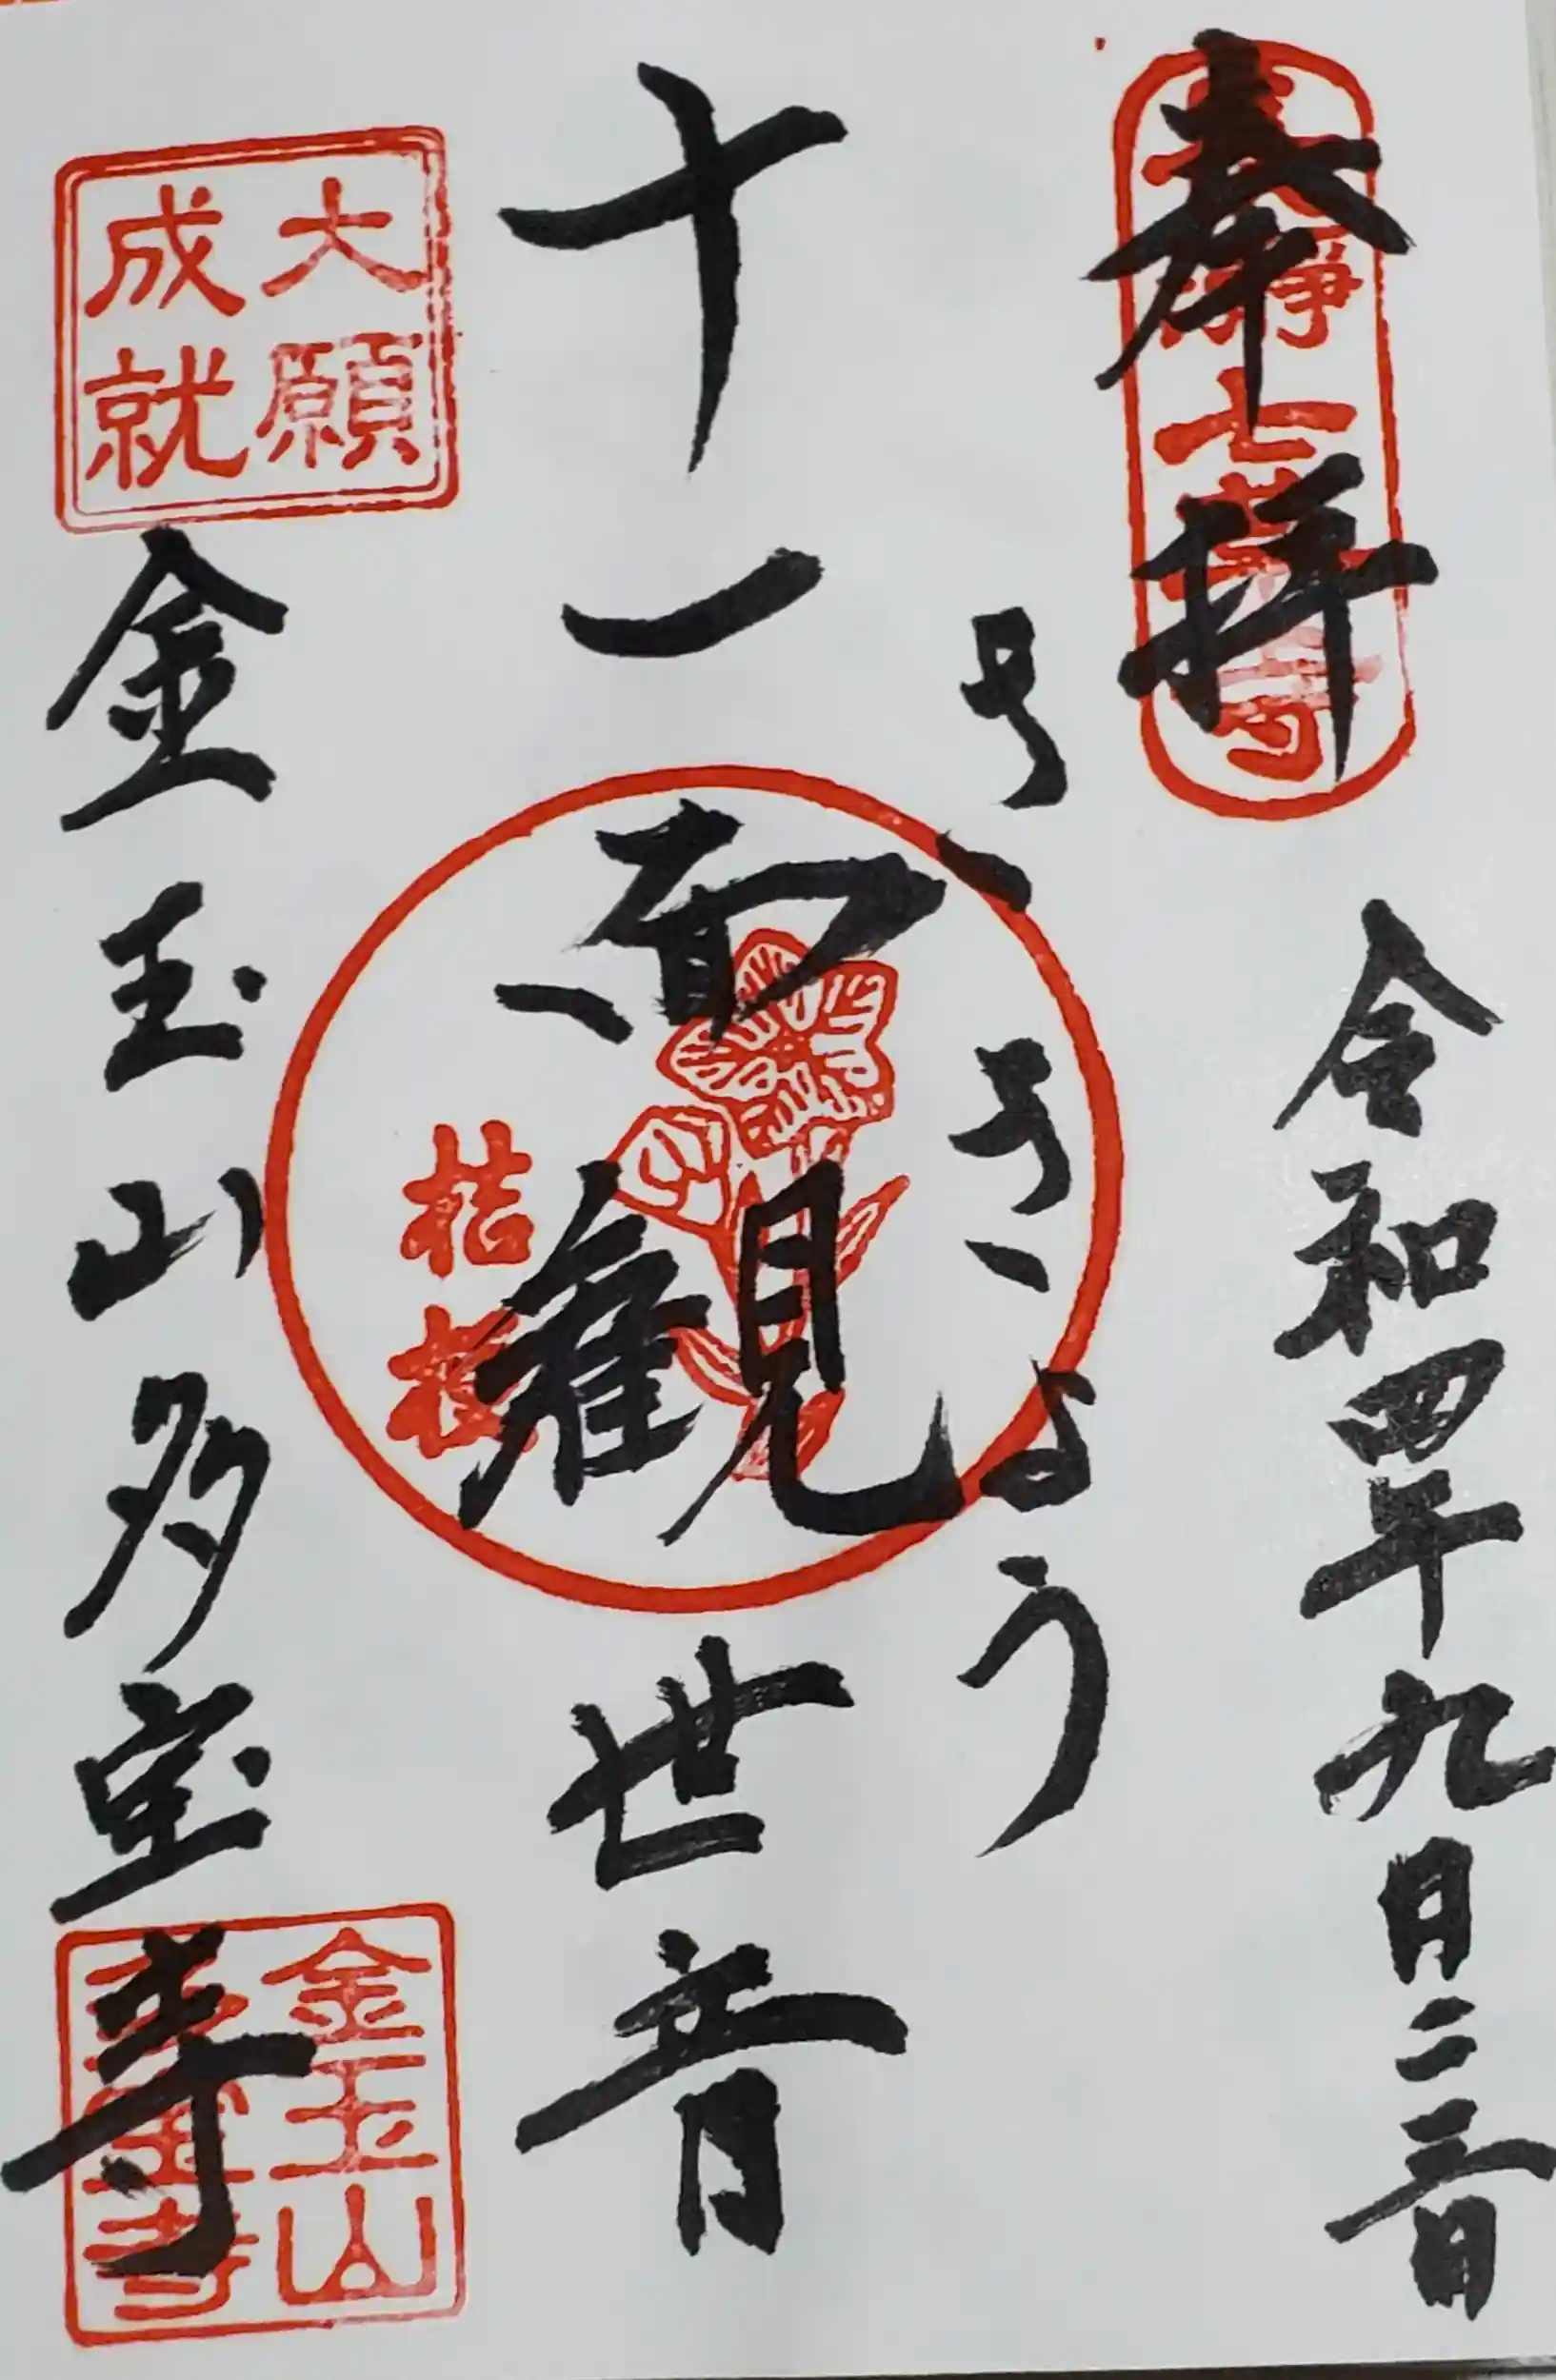 奉拝
長瀞七草寺
令和四年九月二三日
ききょう
十一面観世音
桔梗
大願
成就
金玉山多宝寺
金玉山